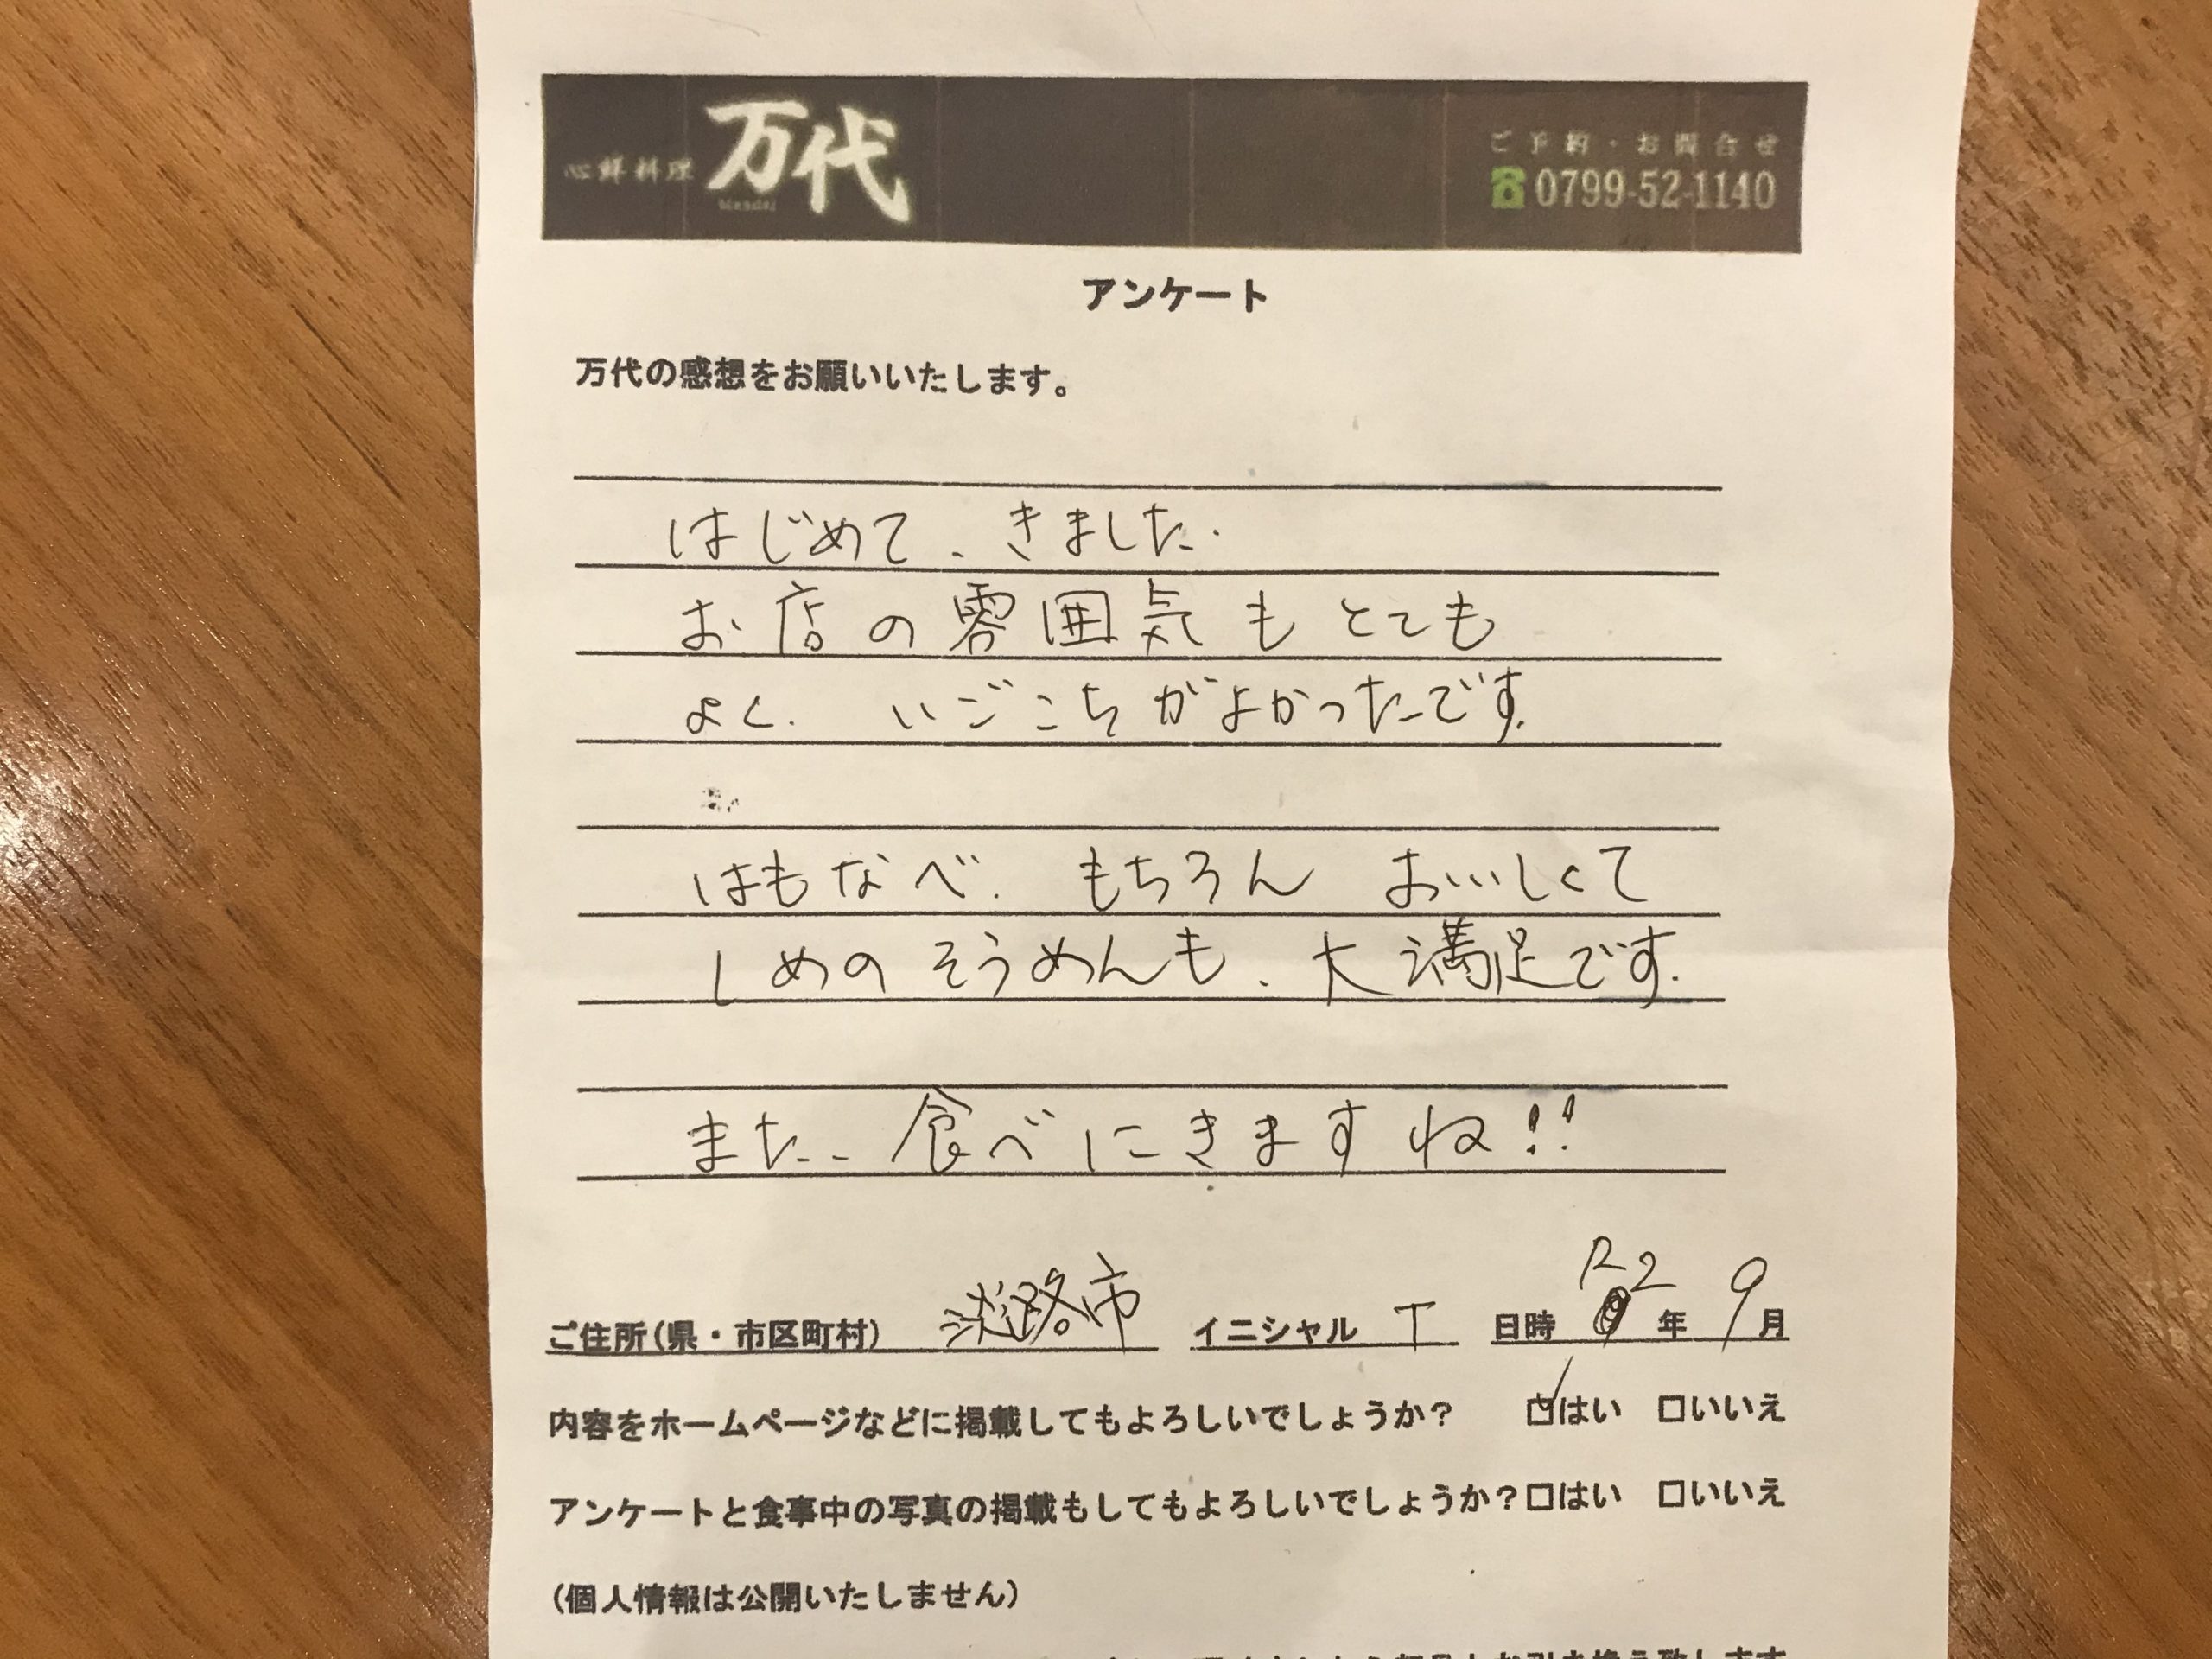 心鮮料理 万代
Mandai
ご予約・お問合せ
☎0799-52-1140
アンケート
万代の感想をお願いいたします。
はじめて、きました.
お店の雰囲気もとても
よく. いごこちがよかったです.
はもなべ. もちろん おいしくて
しめのそうめんも、大満足です.
また、食べにきますね!!
ご住所(県・市区町村) 淡路市 イニシャル T 日時 R2年 9月
内容をホームページなどに掲載してもよろしいでしょうか? ☑はい □いいえ
アンケートと食事中の写真の掲載もしてもよろしいでしょうか?□はい □いいえ
(個人情報は公開いたしません)